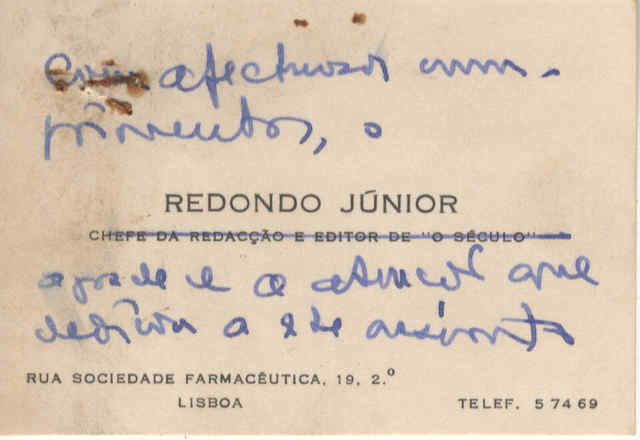 Com afectuosos cum-
primentos, o
REDONDO JÚNIOR
CHEFE DA REDACÇÃO E EDITOR DE "O SÉCULO"
agradece a atenção que
dedicou a este assunto
RUA SOCIEDADE FARMACÊUTICA, 19, 2.º
LISBOA
TELEF. 5 74 69